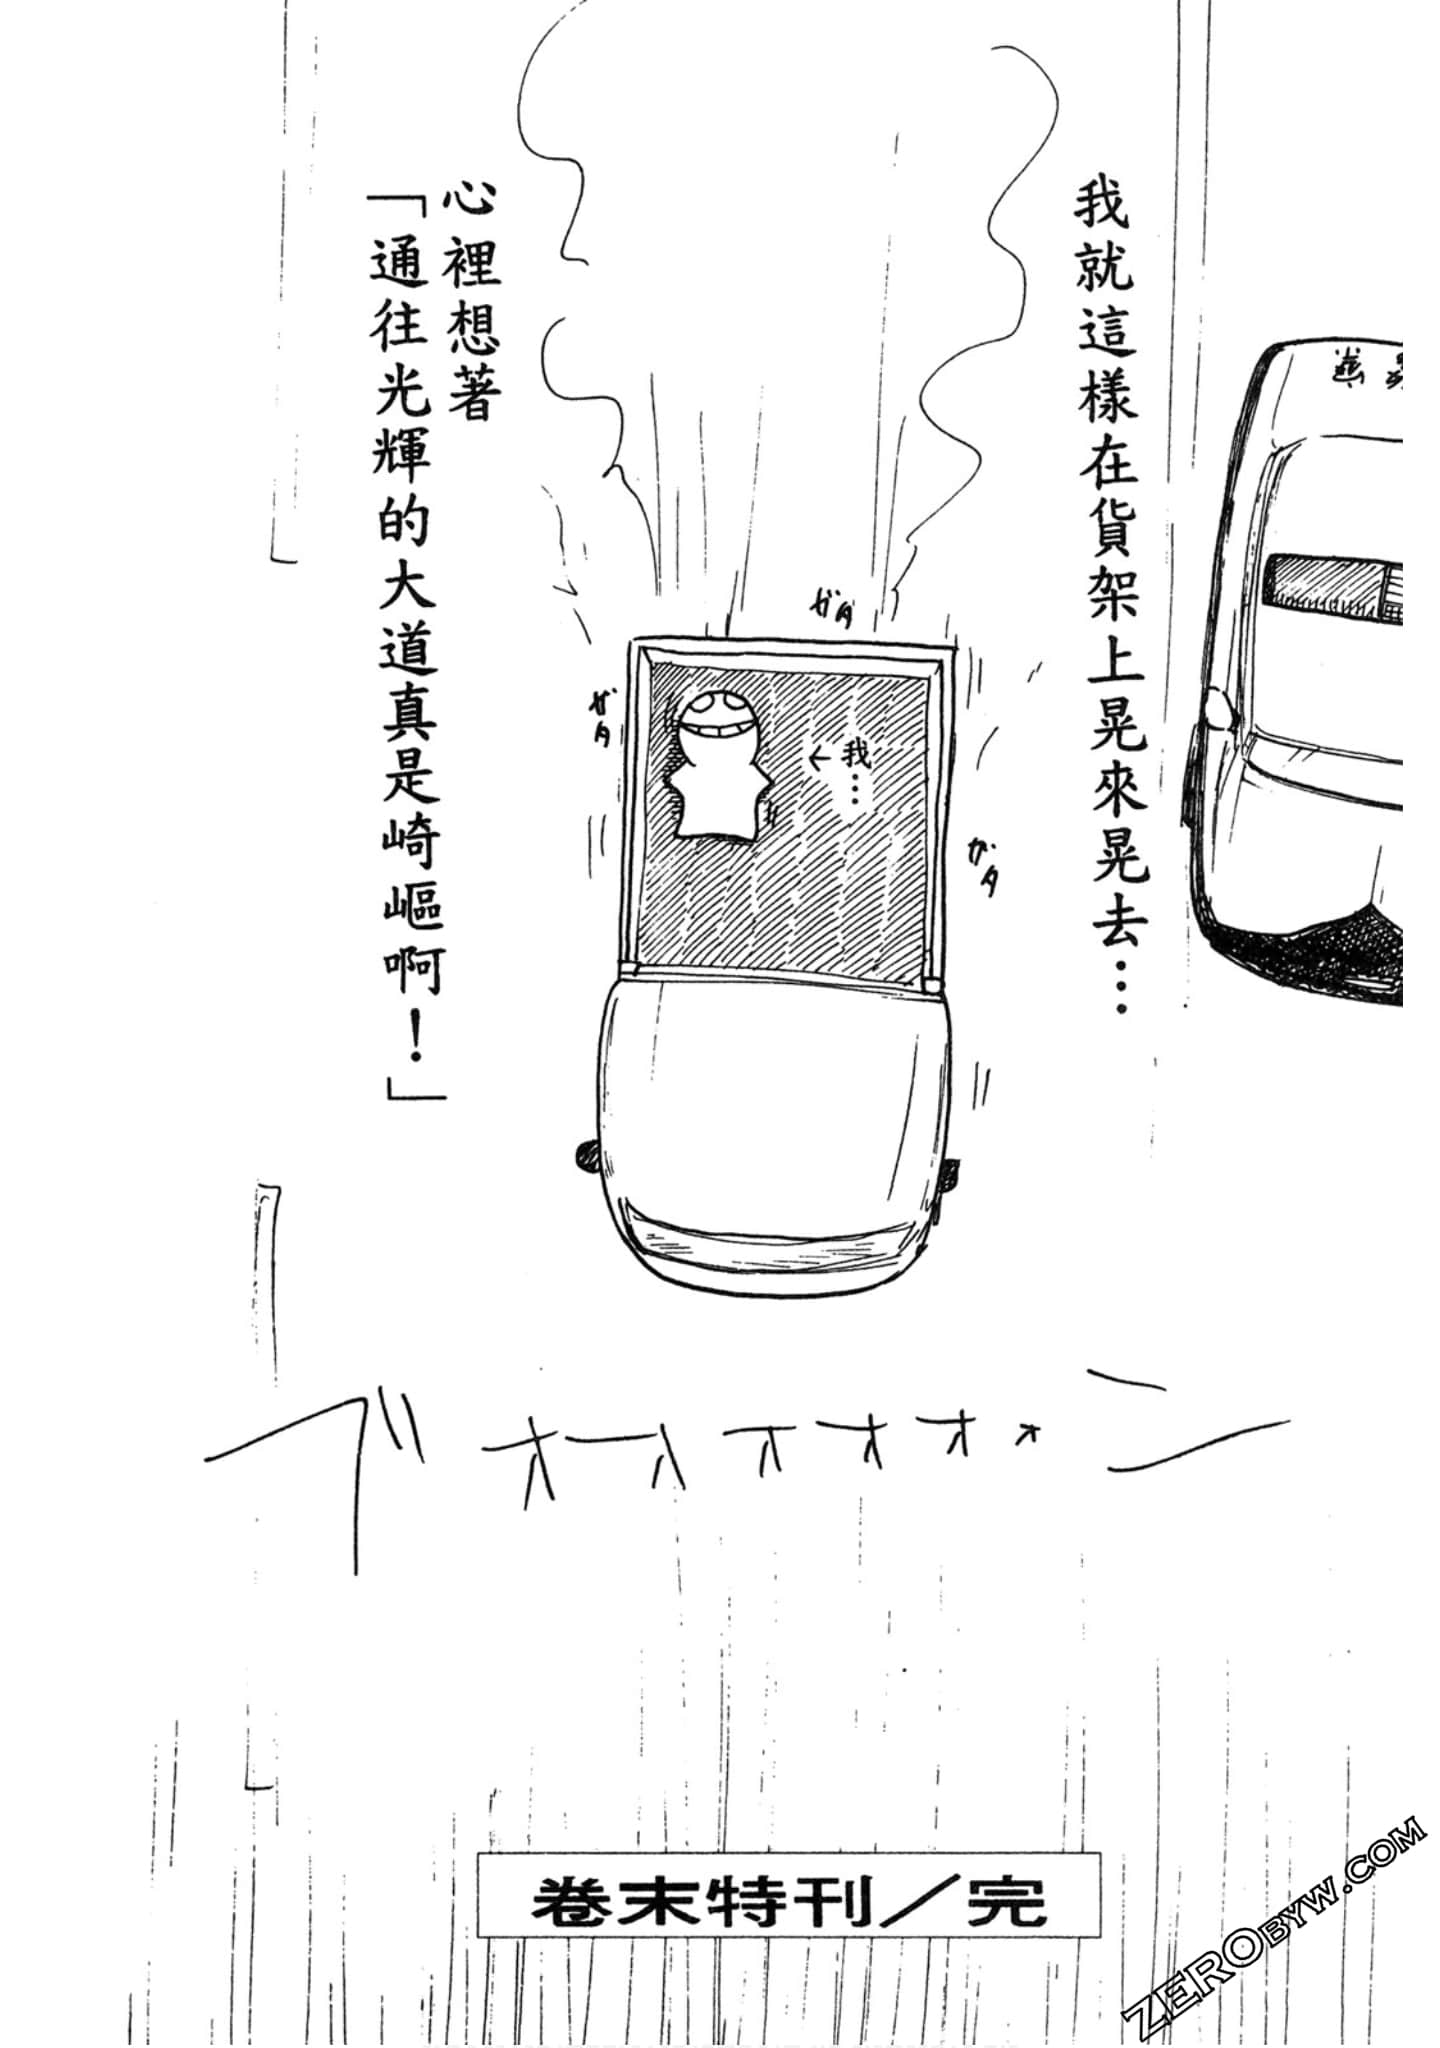 我就這樣在貨架上晃來晃去…
心裡想著
「通往光輝的大道真是崎嶇啊！」
ガタ
ガタ
←我…
ガタ
ブオオオオオォン
卷末特刊／完
ZEROBYW.COM